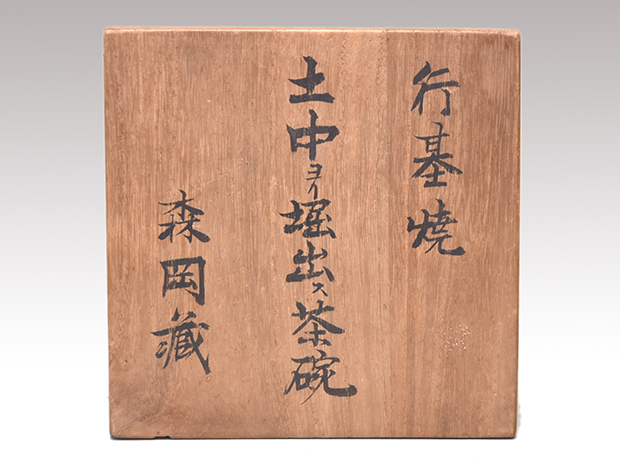 行基焼
土中ヨリ堀出ス茶碗
森岡蔵